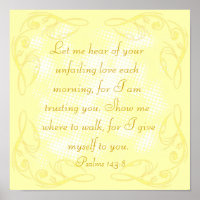 Let me hear of your
unfailing love each
morning, for I am
trusting you, Show me
where to walk, for I give
myself to you.
Psalms 143:8